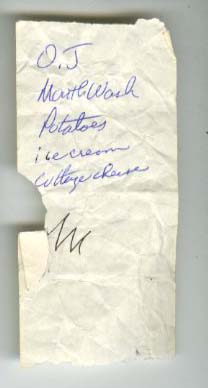 O.J
MouthWash
Potatoes
ice cream
Cottage cheese